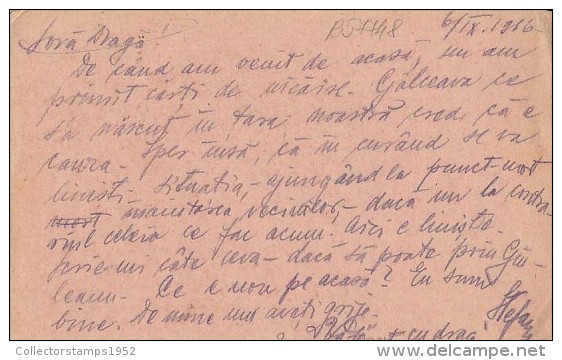 B57748
6/IX.1916
Soră Dragă.
De când am venit de acasă, nu am
primit cărți de nicăire. Gâlceava ce
s'a născut în țara noastră, cred că e
cauza. Sper însă, că în curând se va
liniști situația, ajungând la punct
inainte vecinilor, dacă nu la contra-
riul celeia ce fac acum. Aici e liniște.
Scrie-mi câte ceva dacă să poate prin
Ce e nou pe acasă? Eu sunt
bine. De mine nu aveți grije.
cu drag
Ștefan
Collectorstamps1952
delcampe.net